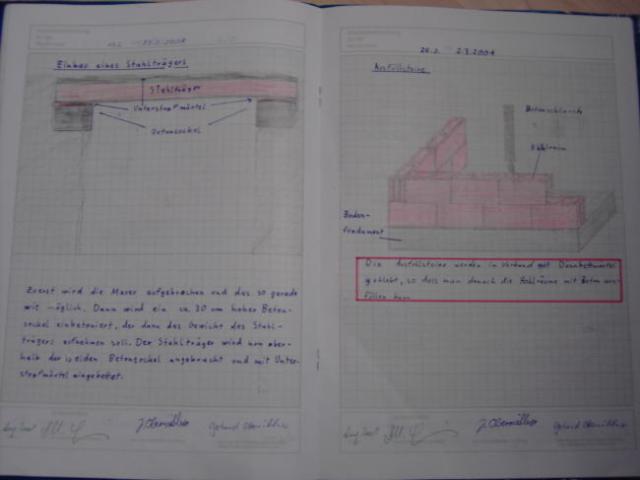 Einbau eines Stahlträgers
Stahlträger
Unterstopfmörtel
Betonsockel
Zuerst wird die Mauer aufgebrochen und das so gerade
wie möglich. Dann wird ein ca. 30 cm hoher Beton-
sockel einbetoniert, der dann das Gewicht des Stahl-
trägers aufnehmen soll. Der Stahlträger wird nun ober-
halb der beiden Betonsockel angebracht und mit Unter-
stopfmörtel eingebettet.
J. Obermüller
Gerhard Obermüller
2.3.2004
Ausfüllsteine
Betonschlauch
Hohlraum
Boden-
fundament
Die Ausfüllsteine werden im Verband mit Dünnbettmörtel
geklebt, so dass man danach die Hohlräume mit Beton aus-
füllen kann.
J. Obermüller
Gerhard Obermüller